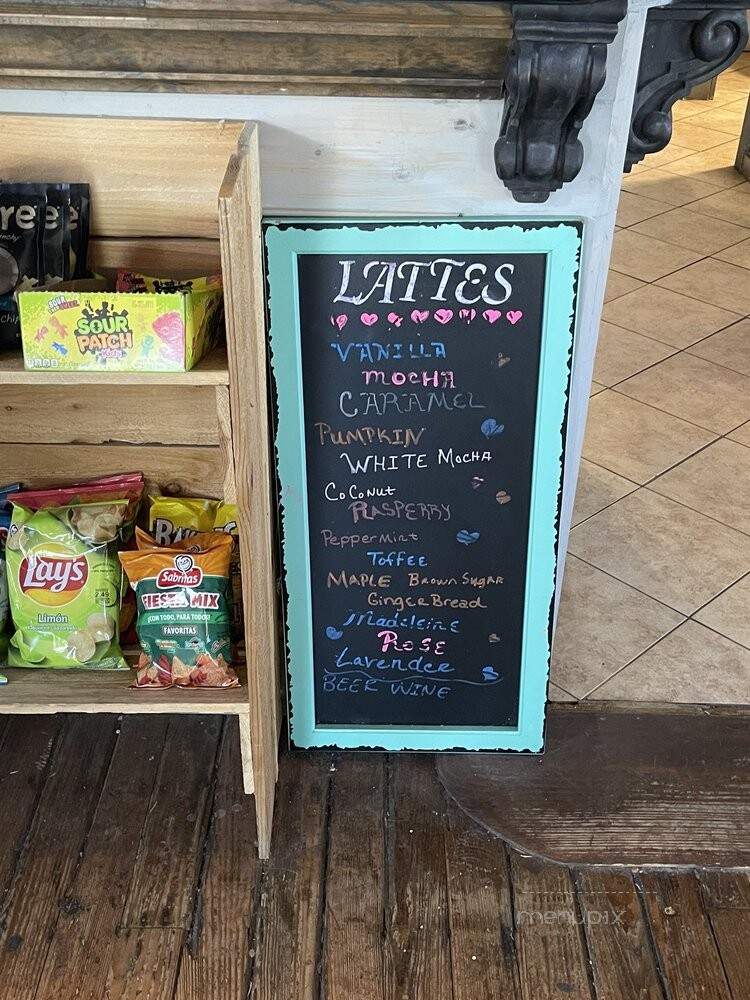 LATTES
VANILLA
MOCHA
CARAMEL
PUMPKIN
WHITE MOCHA
COCONUT
RASPERRY
Peppermint
Toffee
MAPLE BROWN SUGAR
GINGERBREAD
Madeleine
ROSE
Lavender
BEER WINE
ree
SOUR PATCH Kids
Lay's
Limón
Sabritas
FIESTA MIX
¡CON TODO, PARA TODOS!
FAVORITAS
menupix